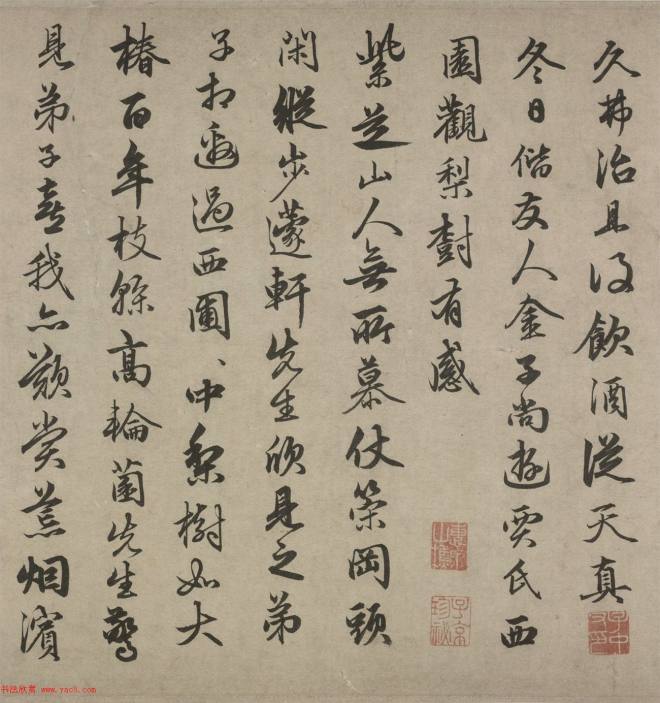 久茀治且飲酒從天真
冬日偕友人金子尚遊賈氏西
園觀梨樹有感
紫芝山人無所慕仗策岡頭
閑縱步蘧軒先生欣見之弟
子相邀過西圃、中梨樹如大
椿百年枝幹高輪菌先生驚
見弟子喜我亦嘆賞荒烟濱
子京珍秘
书法欣赏 www.yac8.com